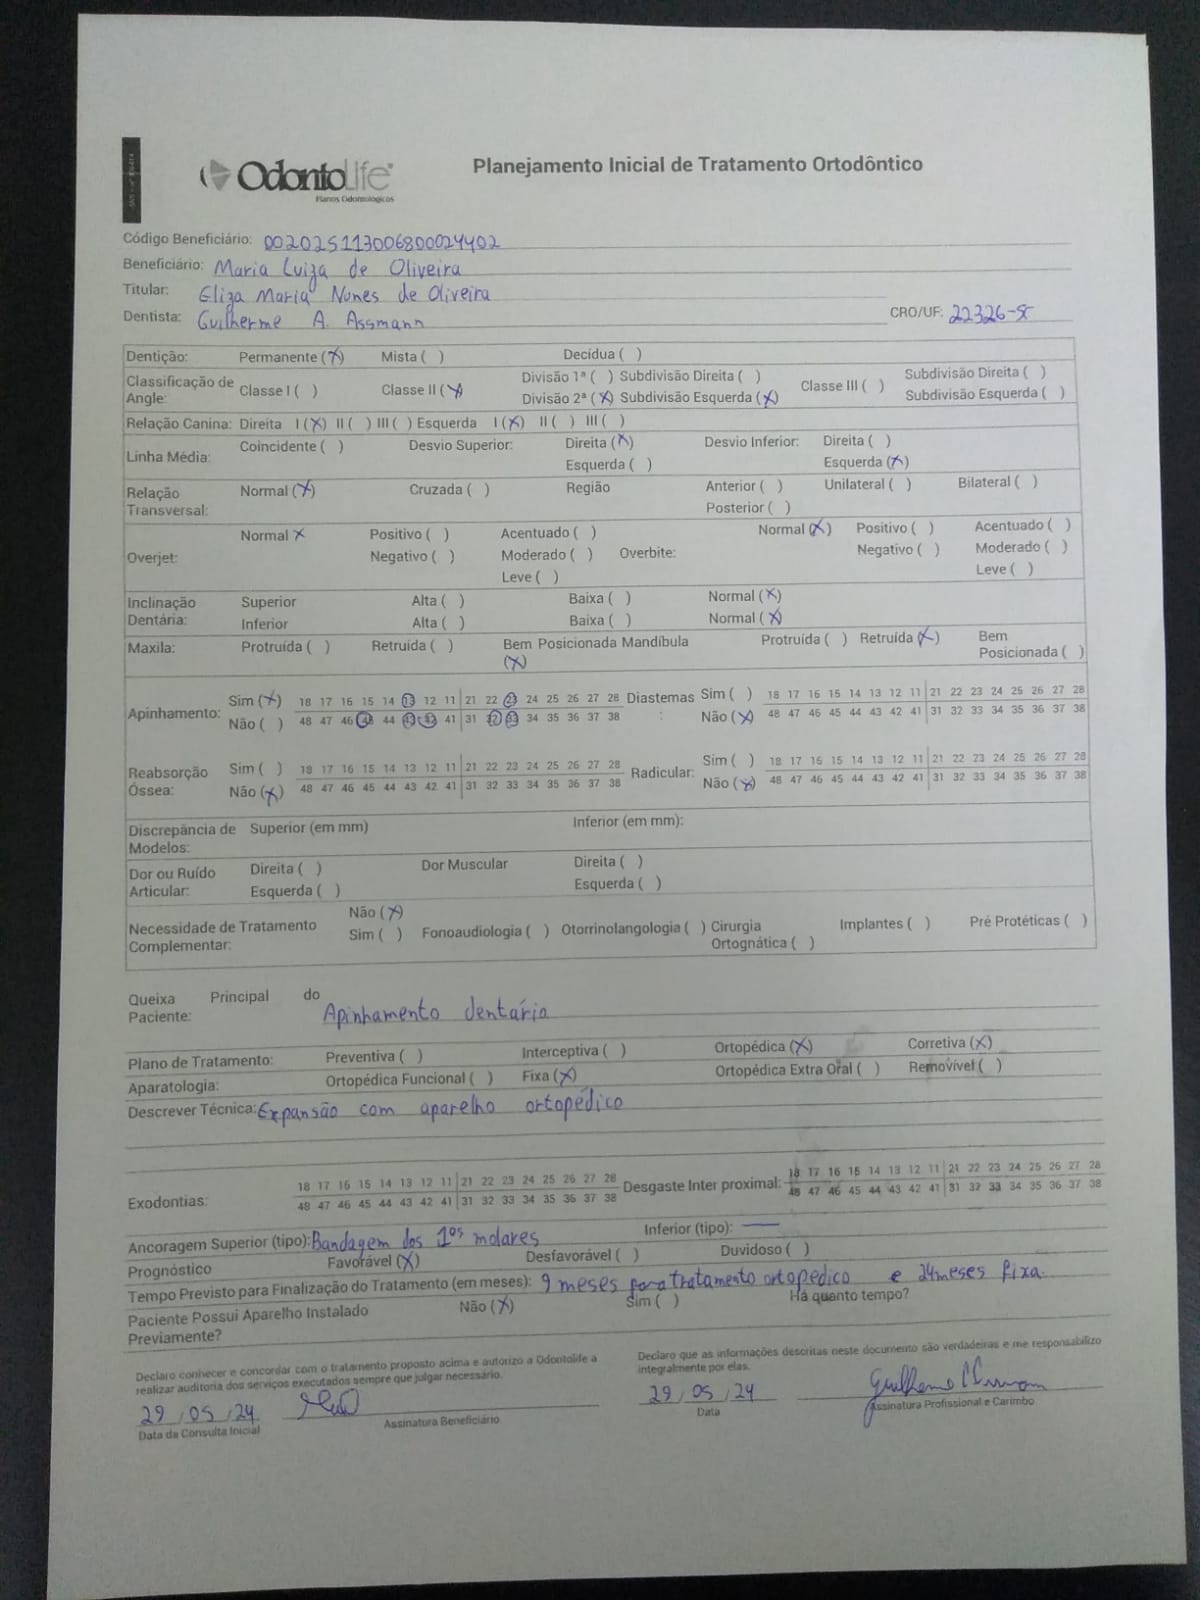 OdontoLife
Planos Odontológicos
Planejamento Inicial de Tratamento Ortodôntico
Código Beneficiário: 002025113006800024402
Beneficiário: Maria Luiza de Oliveira
Titular: Eliza Maria Nunes de Oliveira
Dentista: Guilherme A. Assmann CRO/UF: 22326-SC
Dentição: Permanente (X) Mista ( ) Decídua ( )
Classificação de Angle: Classe I ( ) Classe II (X) Divisão 1ª ( ) Subdivisão Direita ( ) Divisão 2ª (X) Subdivisão Esquerda (X) Classe III ( ) Subdivisão Direita ( ) Subdivisão Esquerda ( )
Relação Canina: Direita I (X) II ( ) III ( ) Esquerda I (X) II ( ) III ( )
Linha Média: Coincidente ( ) Desvio Superior: Direita (X) Esquerda ( ) Desvio Inferior: Direita ( ) Esquerda (X)
Relação Transversal: Normal (X) Cruzada ( ) Região Anterior ( ) Posterior ( ) Unilateral ( ) Bilateral ( )
Overjet: Normal X Positivo ( ) Negativo ( ) Acentuado ( ) Moderado ( ) Leve ( ) Overbite: Normal (X) Positivo ( ) Negativo ( ) Acentuado ( ) Moderado ( ) Leve ( )
Inclinação Dentária: Superior Alta ( ) Baixa ( ) Normal (X)
Inferior Alta ( ) Baixa ( ) Normal (X)
Maxila: Protruída ( ) Retruída ( ) Bem Posicionada (X) Mandíbula Protruída ( ) Retruída (X) Bem Posicionada ( )
Apinhamento: Sim (X) 18 17 16 15 14 13 12 11 21 22 23 24 25 26 27 28 Diastemas : Sim ( ) 18 17 16 15 14 13 12 11 21 22 23 24 25 26 27 28
Não ( ) 48 47 46 45 44 43 42 41 31 32 33 34 35 36 37 38 Não (X) 48 47 46 45 44 43 42 41 31 32 33 34 35 36 37 38
Reabsorção Óssea: Sim ( ) 18 17 16 15 14 13 12 11 21 22 23 24 25 26 27 28 Radicular: Sim ( ) 18 17 16 15 14 13 12 11 21 22 23 24 25 26 27 28
Não (X) 48 47 46 45 44 43 42 41 31 32 33 34 35 36 37 38 Não (X) 48 47 46 45 44 43 42 41 31 32 33 34 35 36 37 38
Discrepância de Modelos: Superior (em mm) Inferior (em mm):
Dor ou Ruído Articular: Direita ( ) Esquerda ( ) Dor Muscular Direita ( ) Esquerda ( )
Necessidade de Tratamento Complementar: Não (X) Sim ( ) Fonoaudiologia ( ) Otorrinolangologia ( ) Cirurgia Ortognática ( ) Implantes ( ) Pré Protéticas ( )
Queixa Principal do Paciente: Apinhamento dentário
Plano de Tratamento: Preventiva ( ) Interceptiva ( ) Ortopédica (X) Corretiva (X)
Aparatologia: Ortopédica Funcional ( ) Fixa (X) Ortopédica Extra Oral ( ) Removível ( )
Descrever Técnica: Expansão com aparelho ortopédico
Exodontias: 18 17 16 15 14 13 12 11 21 22 23 24 25 26 27 28 Desgaste Inter proximal: 18 17 16 15 14 13 12 11 21 22 23 24 25 26 27 28
48 47 46 45 44 43 42 41 31 32 33 34 35 36 37 38 48 47 46 45 44 43 42 41 31 32 33 34 35 36 37 38
Ancoragem Superior (tipo): Bandagem dos 1ºs molares Inferior (tipo): —
Prognóstico Favorável (X) Desfavorável ( ) Duvidoso ( )
Tempo Previsto para Finalização do Tratamento (em meses): 9 meses para tratamento ortopédico e 24 meses fixa
Paciente Possui Aparelho Instalado Previamente? Não (X) Sim ( ) Há quanto tempo?
Declaro conhecer e concordar com o tratamento proposto acima e autorizo a Odontolife a realizar auditoria dos serviços executados sempre que julgar necessário.
Declaro que as informações descritas neste documento são verdadeiras e me responsabilizo integralmente por elas.
29/05/24
Data da Consulta Inicial
Assinatura Beneficiário
29/05/24
Data
Assinatura Profissional e Carimbo